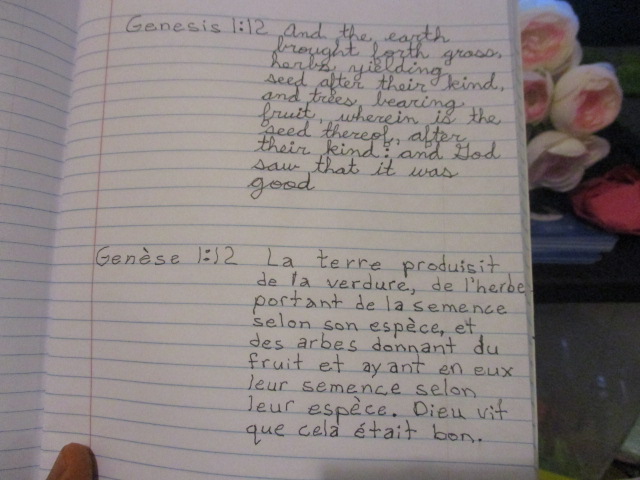 Genesis 1:12 And the earth
brought forth grass,
herbs yielding
seed after their kind,
and trees bearing
fruit, wherein is the
seed thereof, after
their kind: and God
saw that it was
good
Genèse 1:12 La terre produisit
de la verdure, de l'herbe
portant de la semence
selon son espèce, et
des arbes donnant du
fruit et ayant en eux
leur semence selon
leur espèce. Dieu vit
que cela était bon.